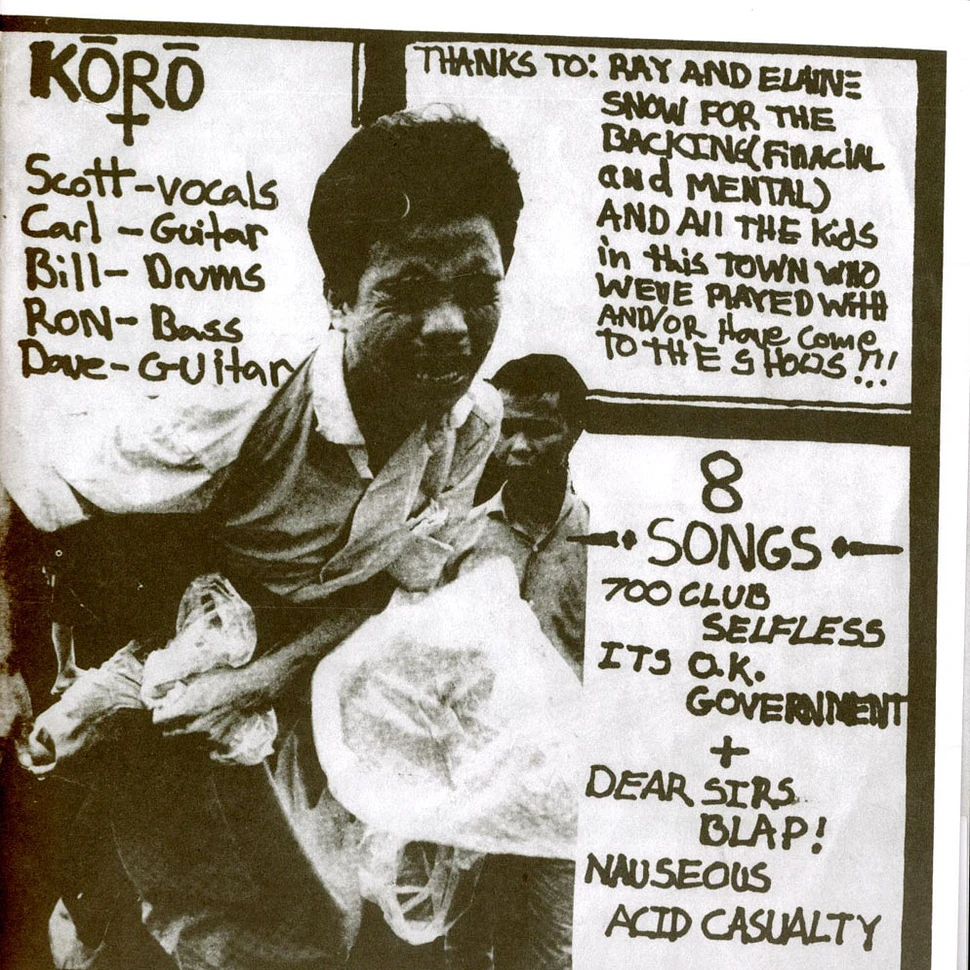 KŌRŌ
Scott-vocals
Carl-Guitar
Bill-Drums
RON-Bass
Dave-GUitar
THANKS TO: RAY AND ELAINE
SNOW FOR THE
BACKING(FinACiAL
and MENTAL)
AND All THE Kids
in this TOWN WHO
WEVE PLAYED WitH
AND/OR Have Come
TO THE SHOWS!!!
8
SONGS
700 CLUB
SELFLESS
ITS O.K.
GOVERNMENT
+
DEAR SIRS
BLAP!
NAUSEOUS
ACID CASUALTY